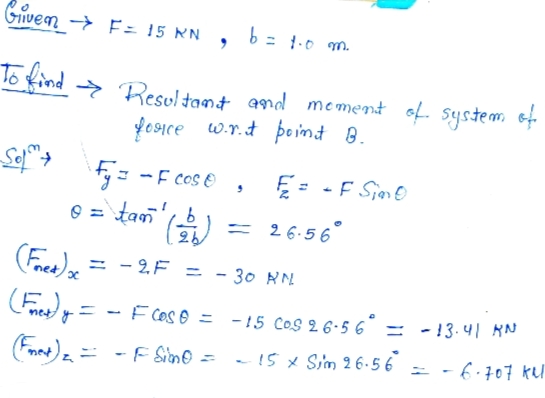 Given → F = 15 KN , b = 1.0 m.
To find → Resultant and moment of system of
force w.r.t point B.
Solⁿ → Fy = - F cos θ , Fz = - F Sin θ
θ = tan⁻¹ (b/2b) = 26.56°
(Fnet)x = - 2F = - 30 KN
(Fnet)y = - F cos θ = - 15 cos 26.56° = - 13.41 KN
(Fnet)z = - F Sin θ = - 15 x Sin 26.56° = - 6.707 KN